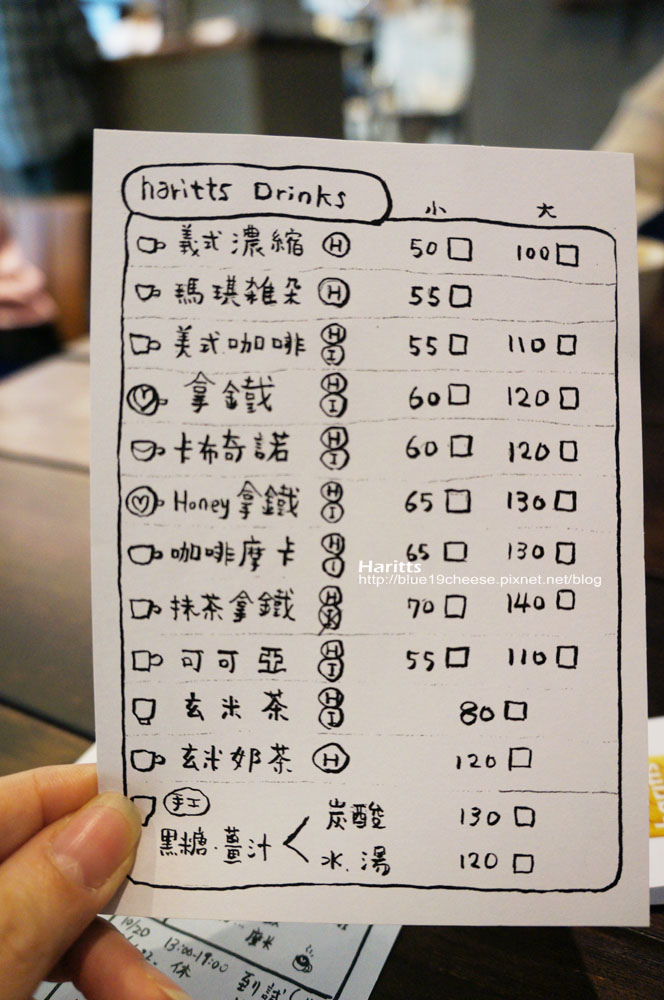 haritts Drinks 小 大
義式濃縮 H 50 100
瑪琪雑朵 H 55
美式咖啡 H I 55 110
拿鐵 H I 60 120
卡布奇諾 H I 60 120
Honey拿鐵 H I 65 130
咖啡摩卡 H I 65 130
抹茶拿鐵 H 70 140
可可亞 H I 55 110
玄米茶 H I 80
玄米奶茶 H 120
手工
黑糖.薑汁 炭酸 130
水.湯 120
Haritts
http://blue19cheese.pixnet.net/blog
10/20 13:00-19:00
休